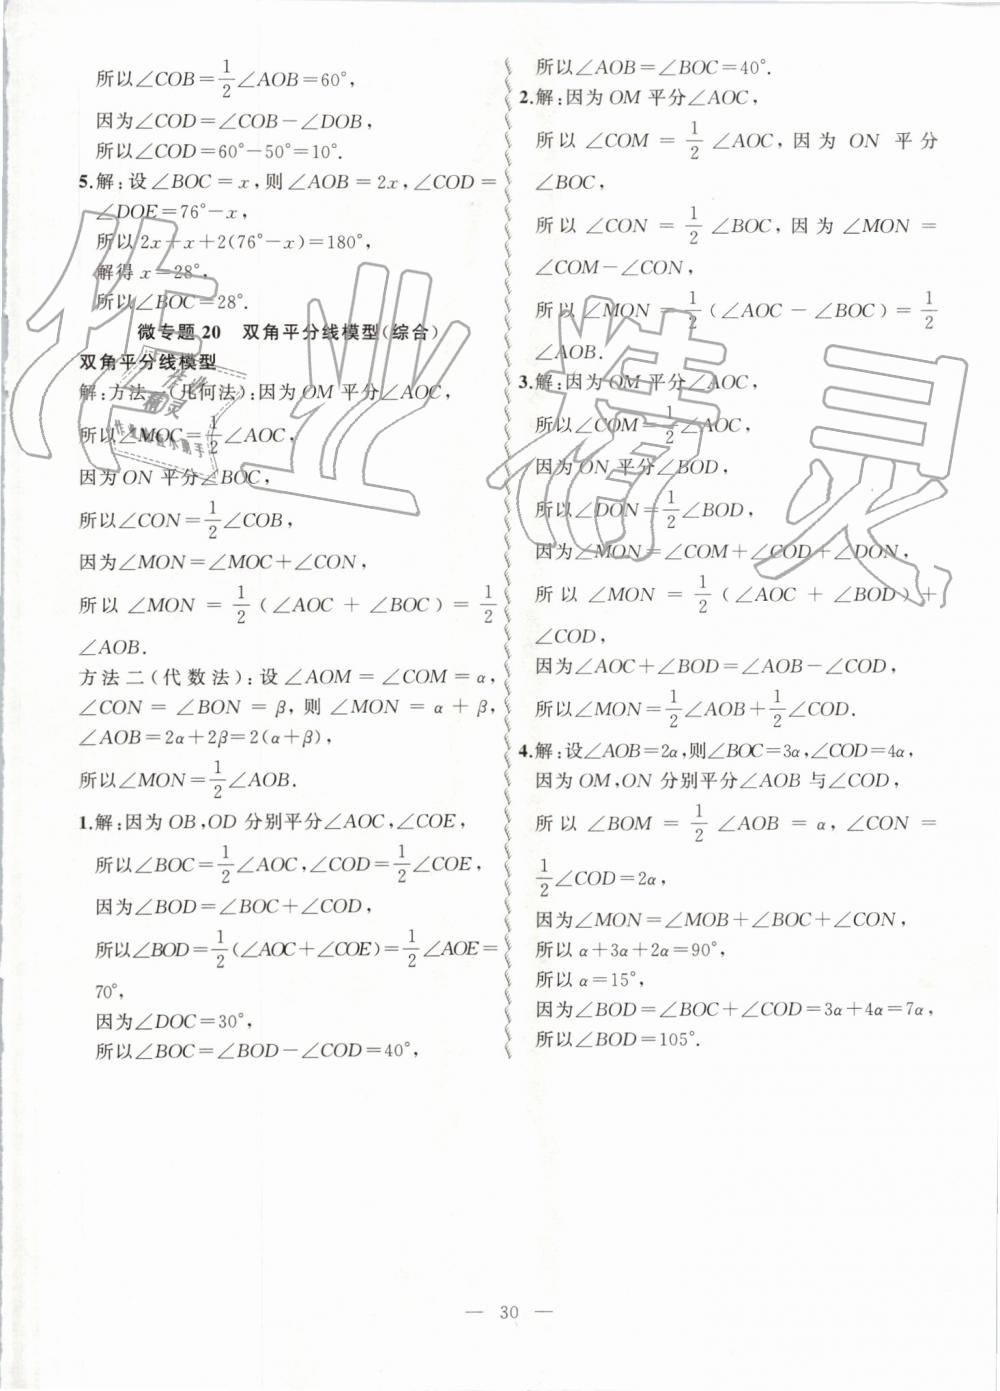 所以∠COB=1/2∠AOB=60°,
因为∠COD=∠COB-∠DOB,
所以∠COD=60°-50°=10°.
5.解:设∠BOC=x,则∠AOB=2x,∠COD=
∠DOE=76°-x,
所以2x+x+2(76°-x)=180°,
解得x=28°,
所以∠BOC=28°.
微专题20 双角平分线模型(综合)
双角平分线模型
解:方法一(几何法):因为OM平分∠AOC,
所以∠MOC=1/2∠AOC,
因为ON平分∠BOC,
所以∠CON=1/2∠COB,
因为∠MON=∠MOC+∠CON,
所以∠MON=1/2(∠AOC+∠BOC)=1/2
∠AOB.
方法二(代数法):设∠AOM=∠COM=α,
∠CON=∠BON=β,则∠MON=α+β,
∠AOB=2α+2β=2(α+β),
所以∠MON=1/2∠AOB.
1.解:因为OB,OD分别平分∠AOC,∠COE,
所以∠BOC=1/2∠AOC,∠COD=1/2∠COE,
因为∠BOD=∠BOC+∠COD,
所以∠BOD=1/2(∠AOC+∠COE)=1/2∠AOE=
70°,
因为∠DOC=30°,
所以∠BOC=∠BOD-∠COD=40°,
所以∠AOB=∠BOC=40°.
2.解:因为OM平分∠AOC,
所以∠COM=1/2∠AOC,因为ON平分
∠BOC,
所以∠CON=1/2∠BOC,因为∠MON=
∠COM-∠CON,
所以∠MON=1/2(∠AOC-∠BOC)=1/2
∠AOB.
3.解:因为OM平分∠AOC,
所以∠COM=1/2∠AOC,
因为ON平分∠BOD,
所以∠DON=1/2∠BOD,
因为∠MON=∠COM+∠COD+∠DON,
所以∠MON=1/2(∠AOC+∠BOD)+
∠COD,
因为∠AOC+∠BOD=∠AOB-∠COD,
所以∠MON=1/2∠AOB+1/2∠COD.
4.解:设∠AOB=2α,则∠BOC=3α,∠COD=4α,
因为OM,ON分别平分∠AOB与∠COD,
所以∠BOM=1/2∠AOB=α,∠CON=
1/2∠COD=2α,
因为∠MON=∠MOB+∠BOC+∠CON,
所以α+3α+2α=90°,
所以α=15°,
因为∠BOD=∠BOC+∠COD=3α+4α=7α,
所以∠BOD=105°.
作业精灵
— 30 —